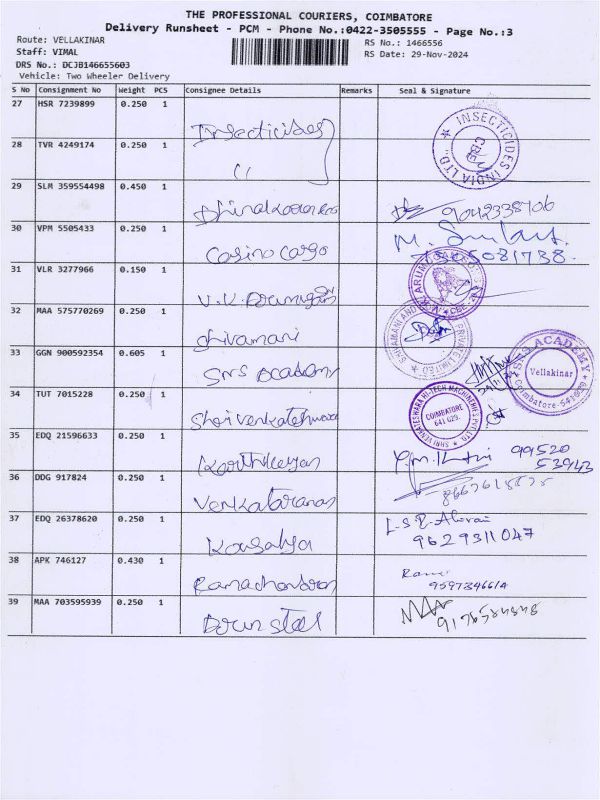 THE PROFESSIONAL COURIERS, COIMBATORE
Delivery Runsheet - PCM - Phone No.:0422-3505555 - Page No.:3
Route: VELLAKINAR
RS No.: 1466556
Staff: VIMAL
RS Date: 29-Nov-2024
DRS No.: DCJB146655603
Vehicle: Two Wheeler Delivery
S No Consignment No Weight PCS Consignee Details Remarks Seal & Signature
27 HSR 7239899 0.250 1 Insecticides
INSECTICIDES INDIA LTD. CBE
28 TVR 4249174 0.250 1 "
29 SLM 359554498 0.450 1
30 VPM 5505433 0.250 1 Casino cargo
31 VLR 3277966 0.150 1
32 MAA 575770269 0.250 1 Shivamani
PRIVATE LIMITED
33 GGN 900592354 0.605 1 SNS Academy
ACADEMY Vellakinar Coimbatore
34 TUT 7015228 0.250 1 Shri venkateshwara
SHRI VENKATESHWARA HI-TECH MACHINERIES PVT LTD COIMBATORE 641 029.
35 EDQ 21596633 0.250 1 Karthikeyan 99520 53943
36 DDG 917824 0.250 1 Venkataraman
37 EDQ 26378620 0.250 1 Kousalya 9629311047
38 APK 746127 0.430 1 Ramachandran
39 MAA 703595939 0.250 1